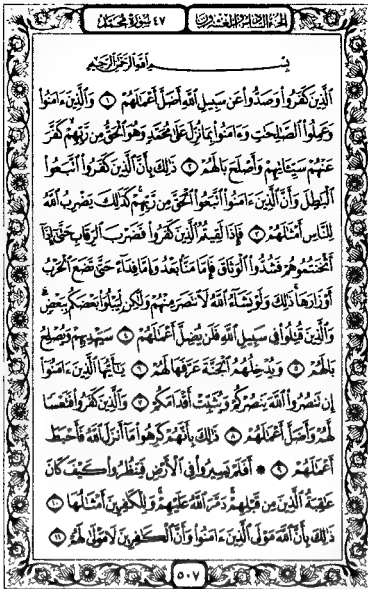 الجزء السادس والعشرون ٤٧ سورة محمد
بِسْمِ اللَّهِ الرَّحْمَٰنِ الرَّحِيمِ
الَّذِينَ كَفَرُوا وَصَدُّوا عَن سَبِيلِ اللَّهِ أَضَلَّ أَعْمَالَهُمْ ١ وَالَّذِينَ ءَامَنُوا
وَعَمِلُوا الصَّالِحَاتِ وَءَامَنُوا بِمَا نُزِّلَ عَلَىٰ مُحَمَّدٍ وَهُوَ الْحَقُّ مِن رَّبِّهِمْ كَفَّرَ
عَنْهُمْ سَيِّئَاتِهِمْ وَأَصْلَحَ بَالَهُمْ ٢ ذَٰلِكَ بِأَنَّ الَّذِينَ كَفَرُوا اتَّبَعُوا
الْبَاطِلَ وَأَنَّ الَّذِينَ ءَامَنُوا اتَّبَعُوا الْحَقَّ مِن رَّبِّهِمْ كَذَٰلِكَ يَضْرِبُ اللَّهُ
لِلنَّاسِ أَمْثَالَهُمْ ٣ فَإِذَا لَقِيتُمُ الَّذِينَ كَفَرُوا فَضَرْبَ الرِّقَابِ حَتَّىٰ إِذَا
أَثْخَنتُمُوهُمْ فَشُدُّوا الْوَثَاقَ فَإِمَّا مَنًّا بَعْدُ وَإِمَّا فِدَاءً حَتَّىٰ تَضَعَ الْحَرْبُ
أَوْزَارَهَا ذَٰلِكَ وَلَوْ يَشَاءُ اللَّهُ لَانتَصَرَ مِنْهُمْ وَلَٰكِن لِّيَبْلُوَا بَعْضَكُم بِبَعْضٍ
وَالَّذِينَ قُتِلُوا فِي سَبِيلِ اللَّهِ فَلَن يُضِلَّ أَعْمَالَهُمْ ٤ سَيَهْدِيهِمْ وَيُصْلِحُ
بَالَهُمْ ٥ وَيُدْخِلُهُمُ الْجَنَّةَ عَرَّفَهَا لَهُمْ ٦ يَا أَيُّهَا الَّذِينَ ءَامَنُوا
إِن تَنصُرُوا اللَّهَ يَنصُرْكُمْ وَيُثَبِّتْ أَقْدَامَكُمْ ٧ وَالَّذِينَ كَفَرُوا فَتَعْسًا
لَّهُمْ وَأَضَلَّ أَعْمَالَهُمْ ٨ ذَٰلِكَ بِأَنَّهُمْ كَرِهُوا مَا أَنزَلَ اللَّهُ فَأَحْبَطَ
أَعْمَالَهُمْ ٩ * أَفَلَمْ يَسِيرُوا فِي الْأَرْضِ فَيَنظُرُوا كَيْفَ كَانَ
عَاقِبَةُ الَّذِينَ مِن قَبْلِهِمْ دَمَّرَ اللَّهُ عَلَيْهِمْ وَلِلْكَافِرِينَ أَمْثَالُهَا ١٠
ذَٰلِكَ بِأَنَّ اللَّهَ مَوْلَى الَّذِينَ ءَامَنُوا وَأَنَّ الْكَافِرِينَ لَا مَوْلَىٰ لَهُمْ ١١
٥٠٧